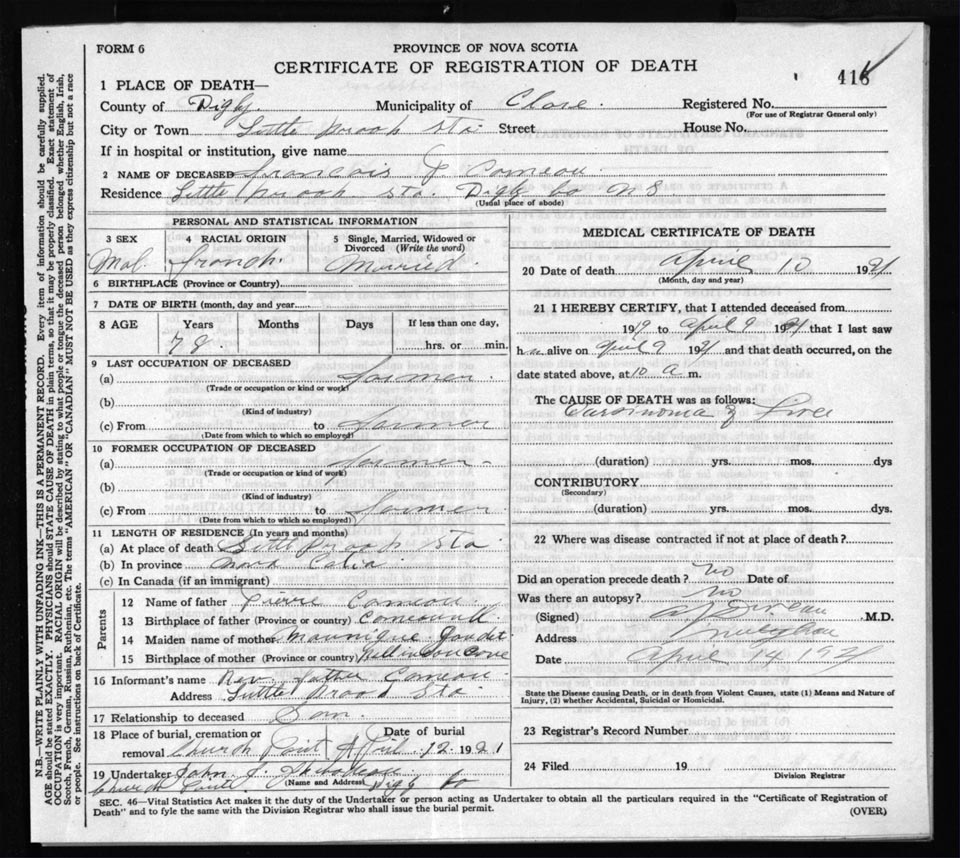 FORM 6
PROVINCE OF NOVA SCOTIA
CERTIFICATE OF REGISTRATION OF DEATH
416
1 PLACE OF DEATH—
County of Digby Municipality of Clare. Registered No.
(For use of Registrar General only)
City or Town Little Brook Sta Street House No.
If in hospital or institution, give name
2 NAME OF DECEASED Francois J Comeau
Residence Little Brook Sta. Digby Co N S
(Usual place of abode)
PERSONAL AND STATISTICAL INFORMATION
3 SEX 4 RACIAL ORIGIN 5 Single, Married, Widowed or Divorced (Write the word)
Mal. French Married.
6 BIRTHPLACE (Province or Country)
7 DATE OF BIRTH (month, day and year)
8 AGE Years Months Days If less than one day,
78 hrs. or min.
9 LAST OCCUPATION OF DECEASED
(a) Farmer
(Trade or occupation or kind or work)
(b)
(Kind of industry)
(c) From to Farmer
(Date from which to which so employed)
10 FORMER OCCUPATION OF DECEASED
(a) Farmer
(Trade or occupation or kind of work)
(b)
(Kind of industry)
(c) From to Farmer
(Date from which to which so employed)
11 LENGTH OF RESIDENCE (In years and months)
(a) At place of death Little Brook Sta
(b) In province Nova
(c) In Canada (if an immigrant)
Parents
12 Name of father Pierre Comeau
13 Birthplace of father (Province or country)
14 Maiden name of mother Gaudet
15 Birthplace of mother (Province or country)
16 Informant's name Rev. Father Comeau
Address Little Brook Sta
17 Relationship to deceased Son
18 Place of burial, cremation or removal Church Point Date of burial April 12 1921
19 Undertaker John J Thibodeau
(Name and Address)
Church Point Digby Co
MEDICAL CERTIFICATE OF DEATH
20 Date of death April 10 1921
(Month, day and year)
21 I HEREBY CERTIFY, that I attended deceased from
1919 to April 9 1921 that I last saw
h alive on April 9 1921 and that death occurred, on the
date stated above, at 10 a m.
The CAUSE OF DEATH was as follows:
Carsinoma of Liver
(duration) yrs. mos. dys
CONTRIBUTORY
(Secondary)
(duration) yrs. mos. dys.
22 Where was disease contracted if not at place of death?
Did an operation precede death? no Date of
Was there an autopsy? no
(Signed) M.D.
Address
Date April 14 1921
State the Disease causing Death, or in death from Violent Causes, state (1) Means and Nature of
Injury, (2) whether Accidental, Suicidal or Homicidal.
23 Registrar's Record Number
24 Filed 19
Division Registrar
SEC. 46—Vital Statistics Act makes it the duty of the Undertaker or person acting as Undertaker to obtain all the particulars required in the "Certificate of Registration of
Death" and to fyle the same with the Division Registrar who shall issue the burial permit. (OVER)
N.B.—WRITE PLAINLY WITH UNFADING INK—THIS IS A PERMANENT RECORD. Every item of information should be carefully supplied.
AGE should be stated EXACTLY. PHYSICIANS should STATE CAUSE OF DEATH in plain terms, so that it may be properly classified. Exact statement of
OCCUPATION is very important. RACIAL ORIGIN will be described by stating to what people or tongue the deceased person belonged whether English, Irish,
Scotch, French, German, Russian, Ruthenian, etc. The terms "AMERICAN" OR "CANADIAN" MUST NOT BE USED as they express citizenship but not a race
or people. See instructions on back of Certificate.